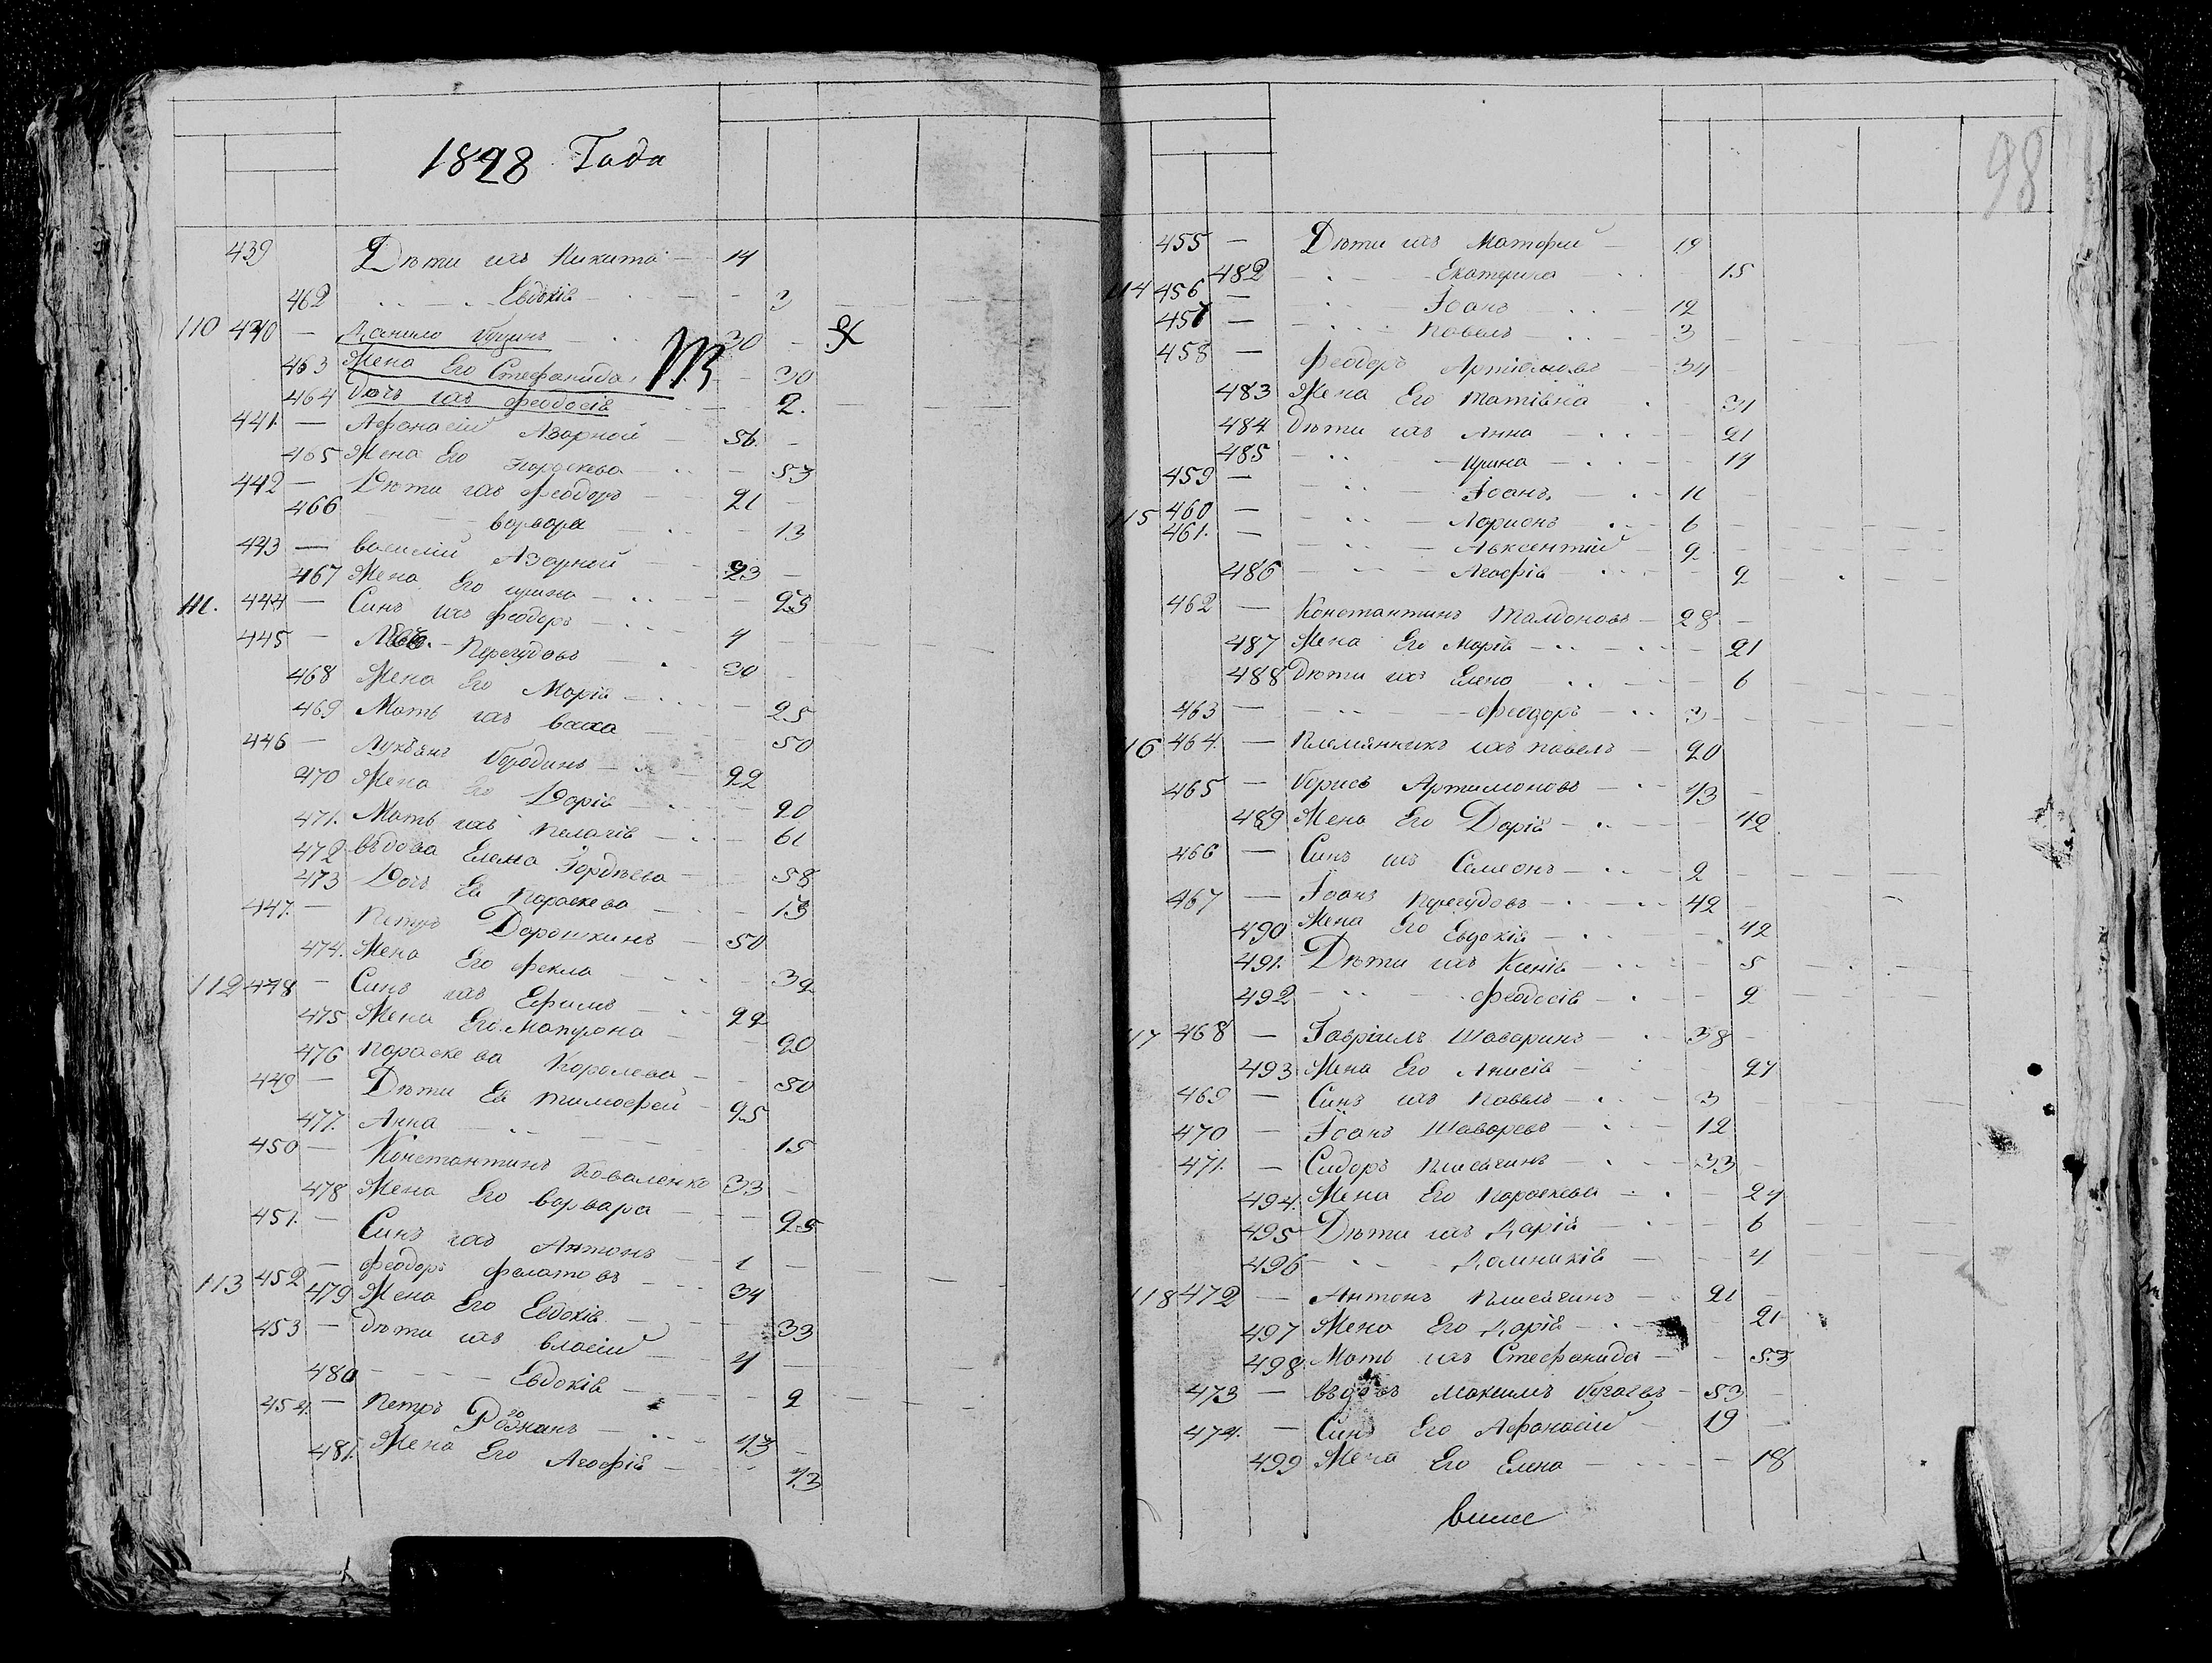 1828 Года
439 Дѣти ихъ Никита 14
462 Евдокія 3
110 440 — Данило 30
463 Жена Его Стефанида 30
464 Дочь ихъ Феодосія 2.
441. — Афонасій Азарной 56
465 Жена Его Пораскева 53
442 — Дѣти ихъ Феодоръ 21
466 Варвара 13
443 — Василій Азарной 23
467 Жена Его Ирина 23
111. 444 — Синъ ихъ Феодоръ 4
445 — Перегудовъ 30
468 Жена Его Марія 25
469 Мать ихъ Васса 50
446 — Лукъянъ Бородинъ 22
470 Жена Его Дарія 20
471. Мать ихъ Пелагія 61
472 Въдова Елена Гордѣева 58
473 Дочь Ея Пораскева 13
447. — Петръ Дорошкинъ 50
474. Жена Его Фекла 39
112 448 — Синъ ихъ Ефимъ 22
475 Жена Его Матрона 20
476 Пораскева Королева 50
449 — Дѣти Ея Тимофей 25
477. Анна 15
450 — Константинъ Коваленко 33
478 Жена Его Варвара 25
451. — Синъ ихъ Антонъ 1
113 452 — Феодоръ Филатовъ 34
479 Жена Его Евдокія 33
453 — Дѣти ихъ Власій 4
480 Евдокія 2
454. — Петръ 43
481. Жена Его Агафія 43
98
455 — Дѣти ихъ Матфей 19
482 Екатерина 15
114 456 — Іоанъ 12
457 — Павелъ 3
458 — Феодоръ Артіомовъ 34
483 Жена Его Татіяна 31
484 Дѣти ихъ Анна 21
485 Ирина 14
459 — Іоанъ 11
115 460 — Ларионъ 6
461. — Авксентій 2
486 Агафія 2
462 — Константинъ 28
487 Жена Его Марія 21
488 Дѣти ихъ Елена 6
463 — Феодоръ 3
116 464. — Племянникъ ихъ Павелъ 20
465 — Борисъ Артимоновъ 43
489 Жена Его Дарія 42
466 — Синъ ихъ Семеонъ 2
467 — Іоанъ Перегудовъ 42
490 Жена Его Евдокія 42
491. Дѣти ихъ Ксенія 5
492 Феодосія 2
117 468 — Гавріилъ Шаваринъ 38
493 Жена Его Анисія 27
469 — Синъ ихъ Павелъ 3
470 — Іоанъ Шаваревъ 12
471. — Сидоръ 33
494. Жена Его Пораскева 24
495 Дѣти ихъ Дарія 6
496 Домникія 4
118 472 — Антонъ 21
497 Жена Его Дарія 21
498 Мать ихъ Стефанида 53
473 — Въдовъ Максимъ 53
474. — Синъ Его Афонасій 19
499 Жена Его Елена 18